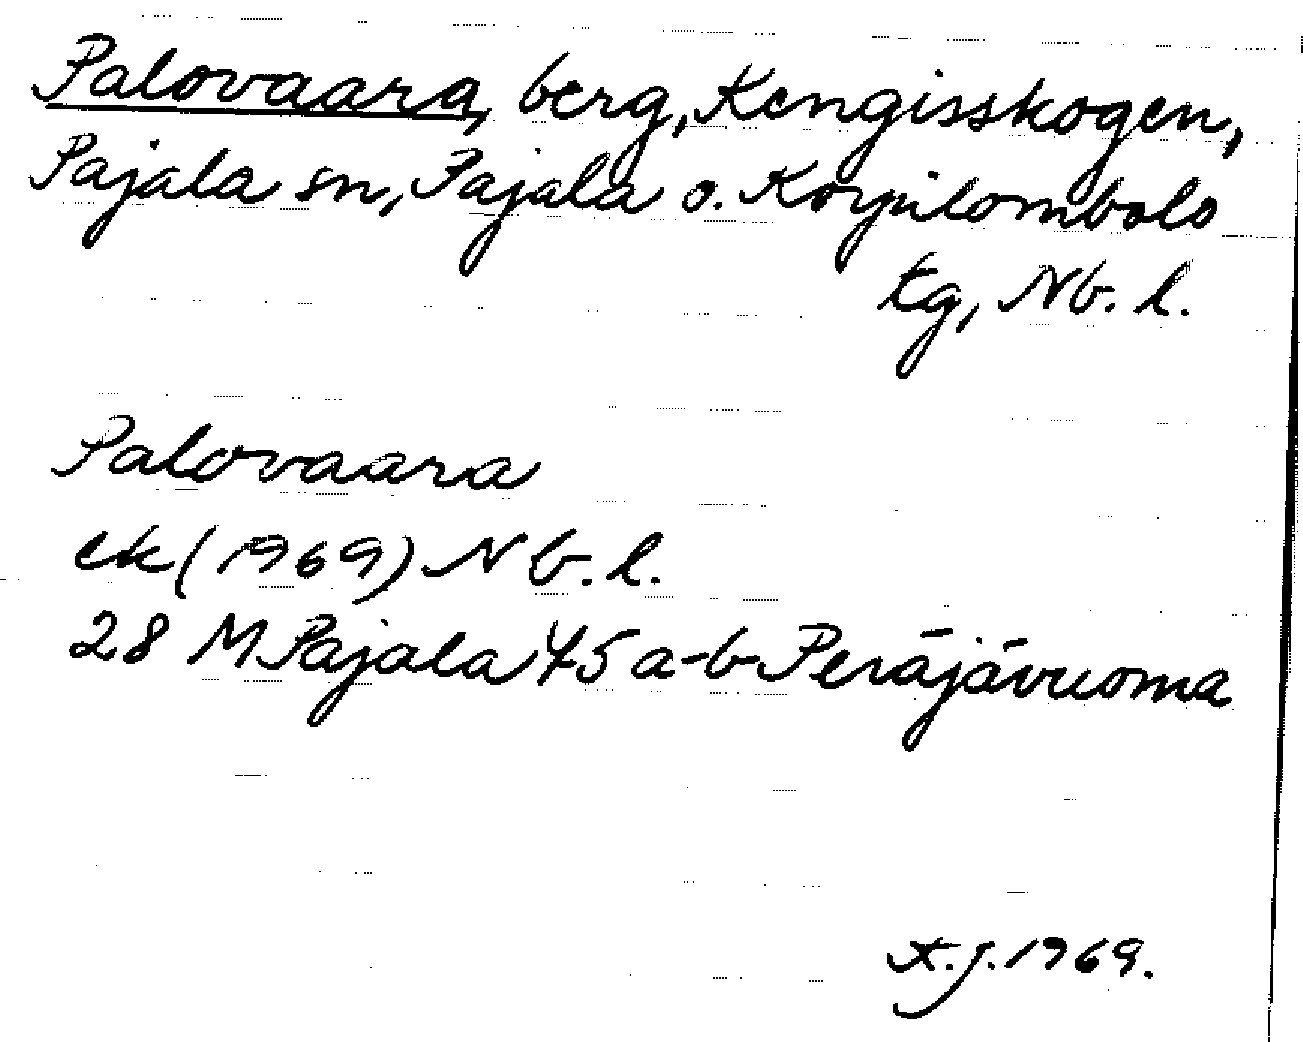 Palovaara, berg, Kengisskogen,
Pajala sn, Pajala o. Korpilombolo
tg, Nb. l.
Palovaara
ek (1969) Nb. l.
28 M Pajala 45 a-b Peräjävuoma
K.J. 1969.